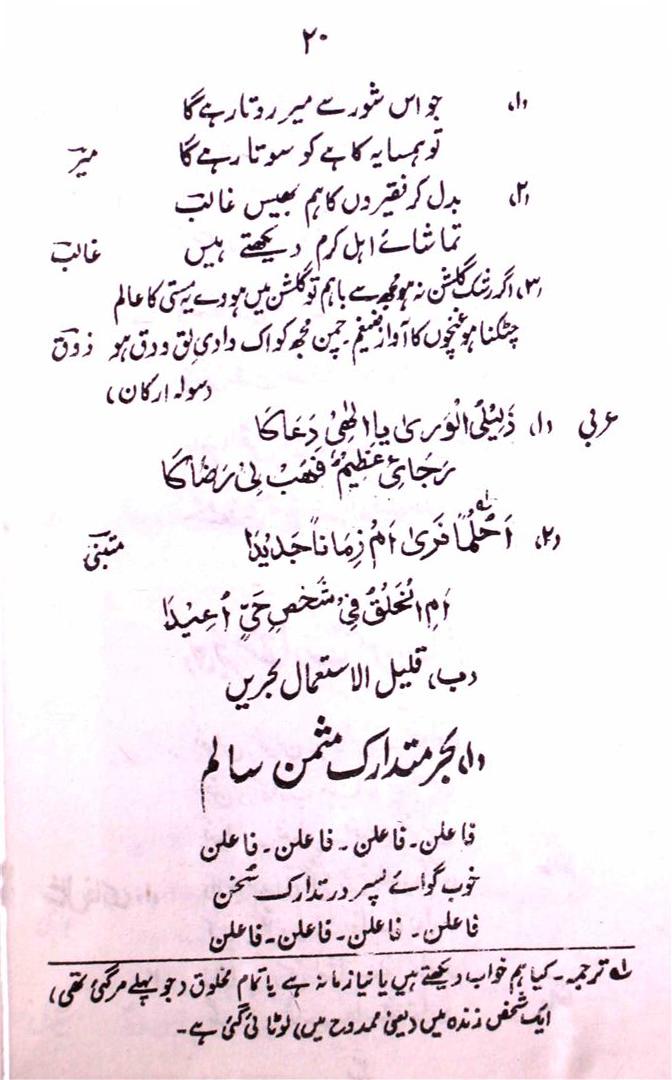 ۲۰
(۱) جو اس شور سے میر روتا رہے گا
تو ہمسایہ کاہے کو سوتا رہے گا میرؔ
(۲) بدل کر فقیروں کا ہم بھیس غالبؔ
تماشائے اہل کرم دیکھتے ہیں غالبؔ
(۳) اگر رشک گلشن نہ ہو مجھ سے باہم تو گلشن میں ہووے یہ ہستی کا عالم
چٹکنا ہو غنچوں کا آواز ضیغم۔ چمن مجھ کو اک وادیِ لق و دق ہو ذوقؔ
(سولہ ارکان)
عربی (۱) ذَلِیْلُ الْوَریٰ یا اِلٰھِیْ دَعَاکَا
رَجَائِیْ عَظِیْمٌ فَھَبْ لِیْ رَضَاکَا
(۲) اَحُلْمًا نَریٰ اَمْ زِمَاناً جَدِیْدَا ؎۱ متنبیؔ
اَمِ الْخَلْقُ فِیْ شَخْصِ حَیٍّ اُعِیْدَا
(ب) قلیل الاستعمال بحریں
(۱) بحر متدارک مثمن سالم
فاعلن۔ فاعلن۔ فاعلن۔ فاعلن
خوب گوائے پسر در تدارک سخن
فاعلن۔ فاعلن۔ فاعلن۔ فاعلن
؎۱ ترجمہ۔ کیا ہم خواب دیکھتے ہیں یا نیا زمانہ ہے یا تمام مخلوق (جو پہلے مر گئی تھی)
ایک شخص زندہ میں (یعنی ممدوح میں) لوٹائی گئی ہے۔